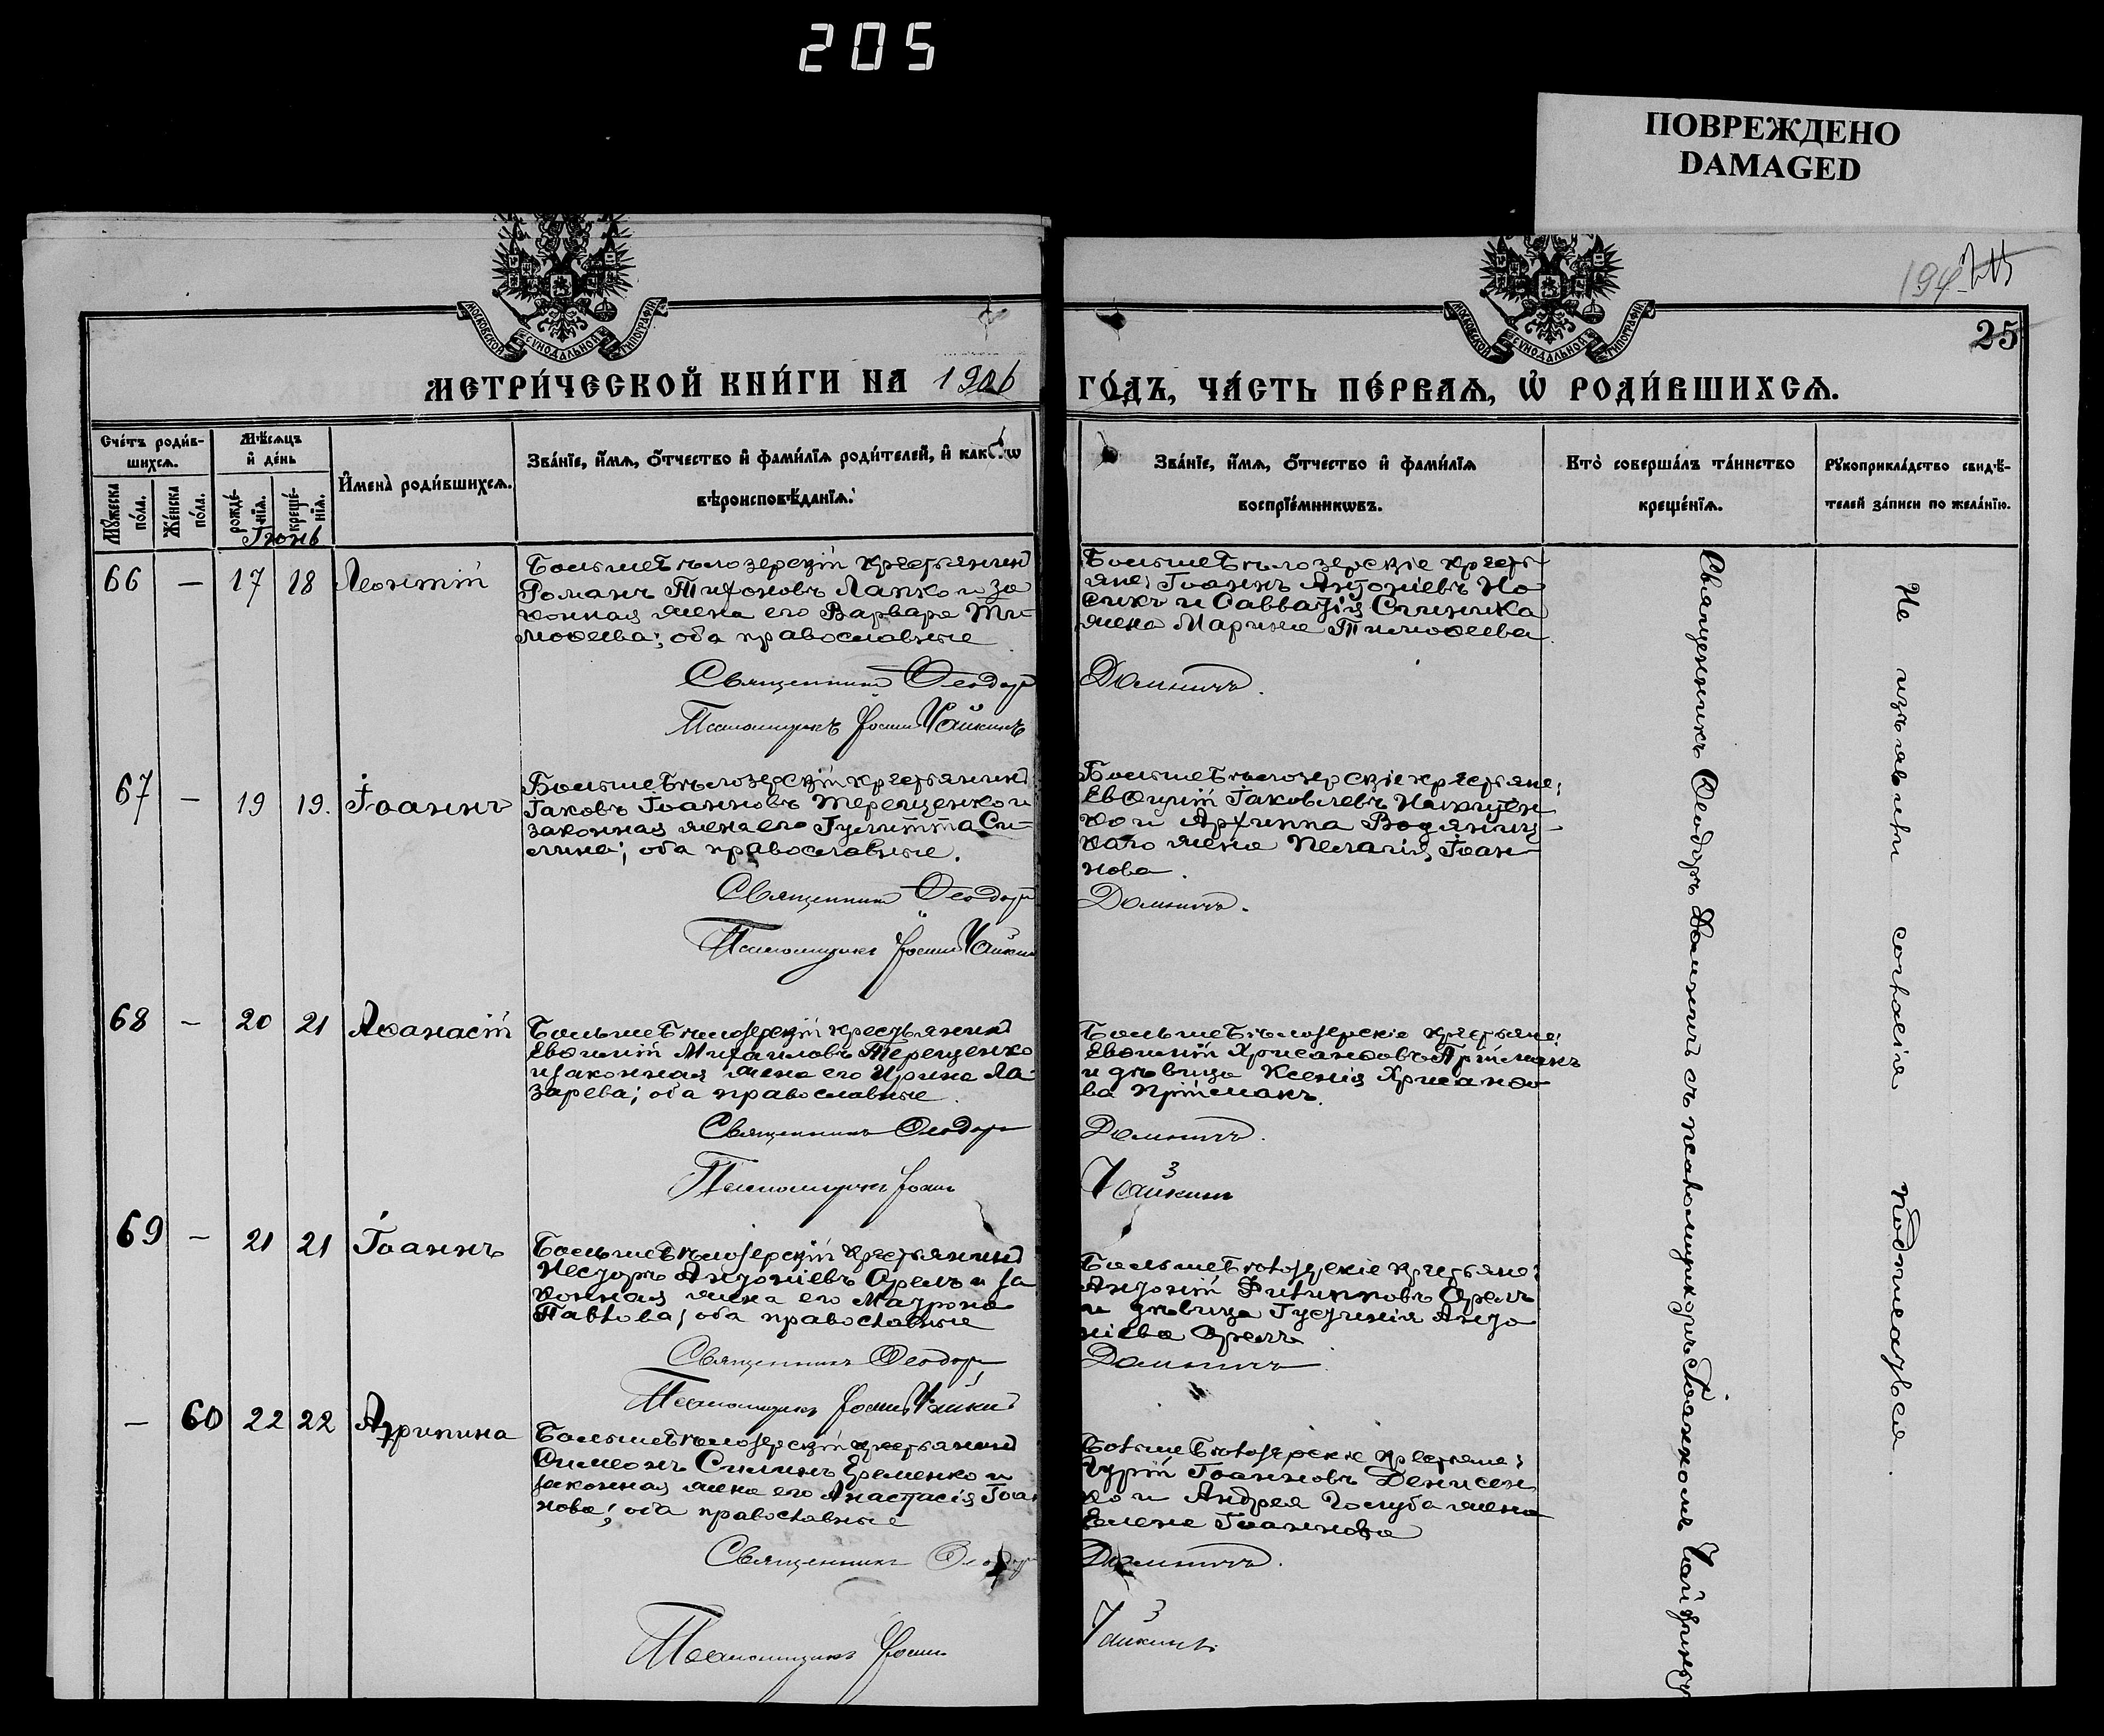 205
ПОВРЕЖДЕНО
DAMAGED
194
25
МОСКОВСКОЙ СѴНОДАЛЬНОЙ ТИПОГРАФІИ
МОСКОВСКОЙ СѴНОДАЛЬНОЙ ТИПОГРАФІИ
МЕТРИ́ЧЕСКОЙ КНИ́ГИ НА 1906 ГО́ДЪ, ЧА́СТЬ ПЕ́РВАѦ, Ѡ҆ РОДИ́ВШИХСѦ.
Сче́тъ роди́в-
шихсѧ.
Мꙋ́жеска по́ла.
Же́нска по́ла.
Мѣ́сѧцъ
и҆ де́нь
рожде́-
нїѧ.
креще́-
нїѧ.
Іюнь
И҆мена̀ роди́вшихсѧ.
Зва́нїе, и҆́мѧ, ѻ҆́тчество и҆ фами́лїѧ роди́телей, и҆ како́гѡ
вѣроисповѣ́данїѧ.
Зва́нїе, и҆́мѧ, ѻ҆́тчество и҆ фами́лїѧ
воспрїе́мникѡвъ.
Кто̀ соверша́лъ та́инство
креще́нїѧ.
Рꙋкоприкла́дство свидѣ́-
телей за́писи по жела́нїю.
66 — 17 18 Леонтій
БольшеБѣлозерскій крестьянинъ
Романъ Тихоновъ Лапко и за
конная жена его Варвара Ти-
моѳеева; оба православные
Священникъ Ѳеодоръ
Псаломщикъ Іоаннъ Чайкинъ
БольшеБѣлозерскіе кресть
яне: Іоаннъ Антоніевъ Но
сикъ и Савватія Слинька
жена Марина Тимоѳеева.
Домничъ.
67 — 19 19. Іоаннъ
БольшеБѣлозерскій крестьянинъ
Іаковъ Іоанновъ Терещенко и
законная жена его Іулитта Си-
лина; оба православные.
Священникъ Ѳеодоръ
Псаломщикъ Іоаннъ Чайкинъ
БольшеБѣлозерскіе крестьяне:
Евѳимій Іаковлевъ
ко и Архиппа Водяниц-
каго жена Пелагія Іоан-
нова.
Домничъ.
68 — 20 21 Аѳанасій
БольшеБѣлозерскій крестьянинъ
Евѳимій Михаиловъ Терещенко
и законная жена его Ирина Ла
зарева; оба православные.
Священникъ Ѳеодоръ
Псаломщикъ Іоаннъ
БольшеБѣлозерскіе крестьяне:
Евѳимій Хрисанѳовъ Пріймакъ
и дѣвица Ксенія Хрисанѳо
ва Пріймакъ.
Домничъ.
Чайкинъ
69 — 21 21 Іоаннъ
БольшеБѣлозерскій крестьянинъ
Несторъ Антоніевъ Орелъ и за
конная жена его Матрона
Павлова; оба православные
Священникъ Ѳеодоръ
Псаломщикъ Іоаннъ Чайкинъ
БольшеБѣлозерскіе крестьяне:
Антоній Филипповъ Орелъ
и дѣвица Іустинія Анто
ніева Орелъ
Домничъ.
— 60 22 22 Агрипина
БольшеБѣлозерскій крестьянинъ
Симеонъ Силинъ Еременко и
законная жена его Анастасія Іоан
нова; оба православные
Священникъ Ѳеодоръ
Псаломщикъ Іоаннъ
БольшеБѣлозерскіе крестьяне:
Гурій Іоанновъ Денисен
ко и Андрея Голуба жена
Елена Іоаннова
Домничъ.
Чайкинъ.
Священникъ Ѳеодоръ Домничъ съ псаломщикомъ Іоанномъ Чайкинымъ
Не изъявили согласія подписаться.